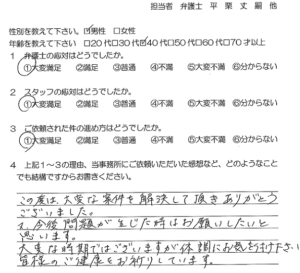 担当者 弁護士 平栗丈嗣 他
性別を教えて下さい。☑男性 □女性
年齢を教えて下さい □20代□30代☑40代□50代□60代□70才以上
1 弁護士の応対はどうでしたか。
①大変満足 ②満足 ③普通 ④不満 ⑤大変不満 ⑥分からない
2 スタッフの応対はどうでしたか。
①大変満足 ②満足 ③普通 ④不満 ⑤大変不満 ⑥分からない
3 ご依頼された件の進め方はどうでしたか。
①大変満足 ②満足 ③普通 ④不満 ⑤大変不満 ⑥分からない
4 上記1～3の理由、当事務所にご依頼いただいた感想など、どのようなこと
でも結構ですからお書きください。
この度は、大変な案件を解決して頂きありがとう
ございました。
又、今後問題が生じた時はお願いしたいと
思います。
大変な時期ではございますが体調にお気を付け下さい
皆様のご健康をお祈りしています。